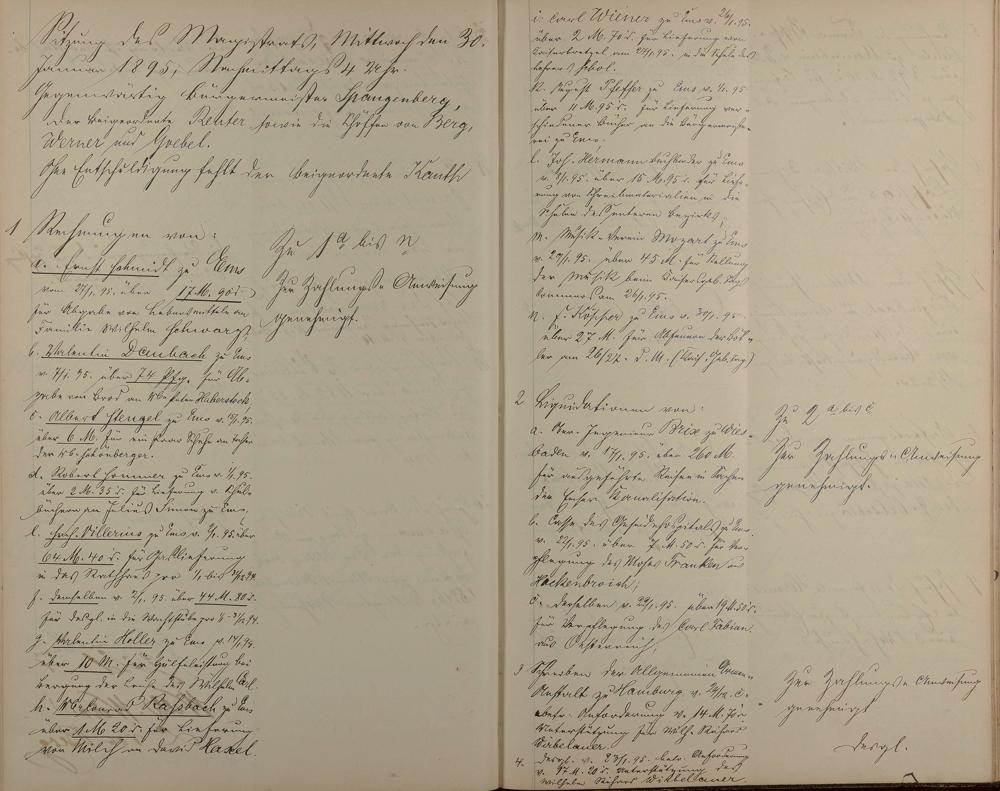 Sitzung des Magistrats, Mittwoch den 30.
Januar 1895, Nachmittags 4 Uhr.
Gegenwärtig Bürgermeister Spangenberg,
der Beigeordnete Reuter sowie die Schöffen von Berg,
Werner und Goebel.
Ohne Entschuldigung fehlt der Beigeordnete Kauth
1 Rechnungen von:
a. Ernst Schmidt zu Ems
vom 27/1. 95. über 17 M. 90 d.
für Abgabe von Lebensmitteln an
Familie Wilhelm Schwarz,
b. Valentin Daubach zu Ems
v. 7/1. 95. über 74 Pfg. für Ab-
gabe von Brod an Wb. Peter Haberstock
c. Albert Stengel zu Ems v. 95.
über 6 M. für ein paar Schuhe an
der Wb. Schönberger.
d. Robert Sommer zu Ems v. 1/1. 95.
über 2 M. 35 d. für Lieferung v. Schul-
büchern an Julius Simon zu Ems,
e. Villerius zu Ems v. 95. über
64 M. 40 d. für Gaslieferung
in das Rathhaus pro
f. demselben v. 2/1. 95. über 44 M. 80 d.
für desgl. in die Wachtstube pro
g. Valentin Heller zu Ems v.
über 10 M. für Hülfeleistung bei
Bergung der Leiche des Wilhelm
h. Kassbach zu Ems
über 1 M 20 d. für Lieferung
von Milch an David Hasel
Zu 1 a bis n
Zur Zahlungs-Anweisung
genehmigt.
i. Carl Wiener zu Ems v. 26/1. 95.
über 2 M. 70 d. für Lieferung von
Kaiserbretzel am 27/1. 95. in die Schule des
Lehrers
k. August Pfeffer zu Ems v. 1/1. 95
über 11 M. 95 d. für Lieferung ver-
schiedener Bücher an die Bürgermeiste-
rei zu Ems.
l. Joh. Hermann Buchbinder zu Ems
v. 95. über 15 M. 95 d. für Liefe-
rung von Schreibmaterialien in die
Schulen des unteren Bezirks,
m. Musik-Verein Mozart zu Ems
v. 95. über 45 M. für Stellung
der Musik beim Kaisergeb. Tags
Commers am 26/1. 95.
n. F. Köpper zu Ems v. 95.
über 27 M. für Abfeuern der Böl-
ler am 26/27. d. M. (Kais. Geb. tag)
2 Liquidationen von:
a. Ober-Ingenieur Brix zu Wies-
baden v. 17/1. 95. über 260 M.
für ausgeführte Reisen in Sachen
der Emser Kanalisation.
b. Casse des Gemeindehospitals zu Ems
v. 22/1. 95. über 7 M. 50 d. für Ver-
pflegung des Moses Franken aus
Hackenbroich;
c. derselben v. 22/1. 95. über 19 M. 50 d.
für Verpflegung des Carl Fabian
aus Oestreich;
Zu 2 a bis c
Zur Zahlungs-Anweisung
genehmigt.
3 Schreiben der Allgemeinen Armen-
Anstalt zu Hamburg v.
betr. Anforderung v. 14 M. 70 d.
Unterstützung für Wilh.
Wirbelauer.
Zur Zahlungs-Anweisung
genehmigt
4. desgl. v. 23/1. 95. betr. Anforderung
v. 97 M. 20 d. Unterstützung des
Wilhelm Wirbelauer.
desgl.